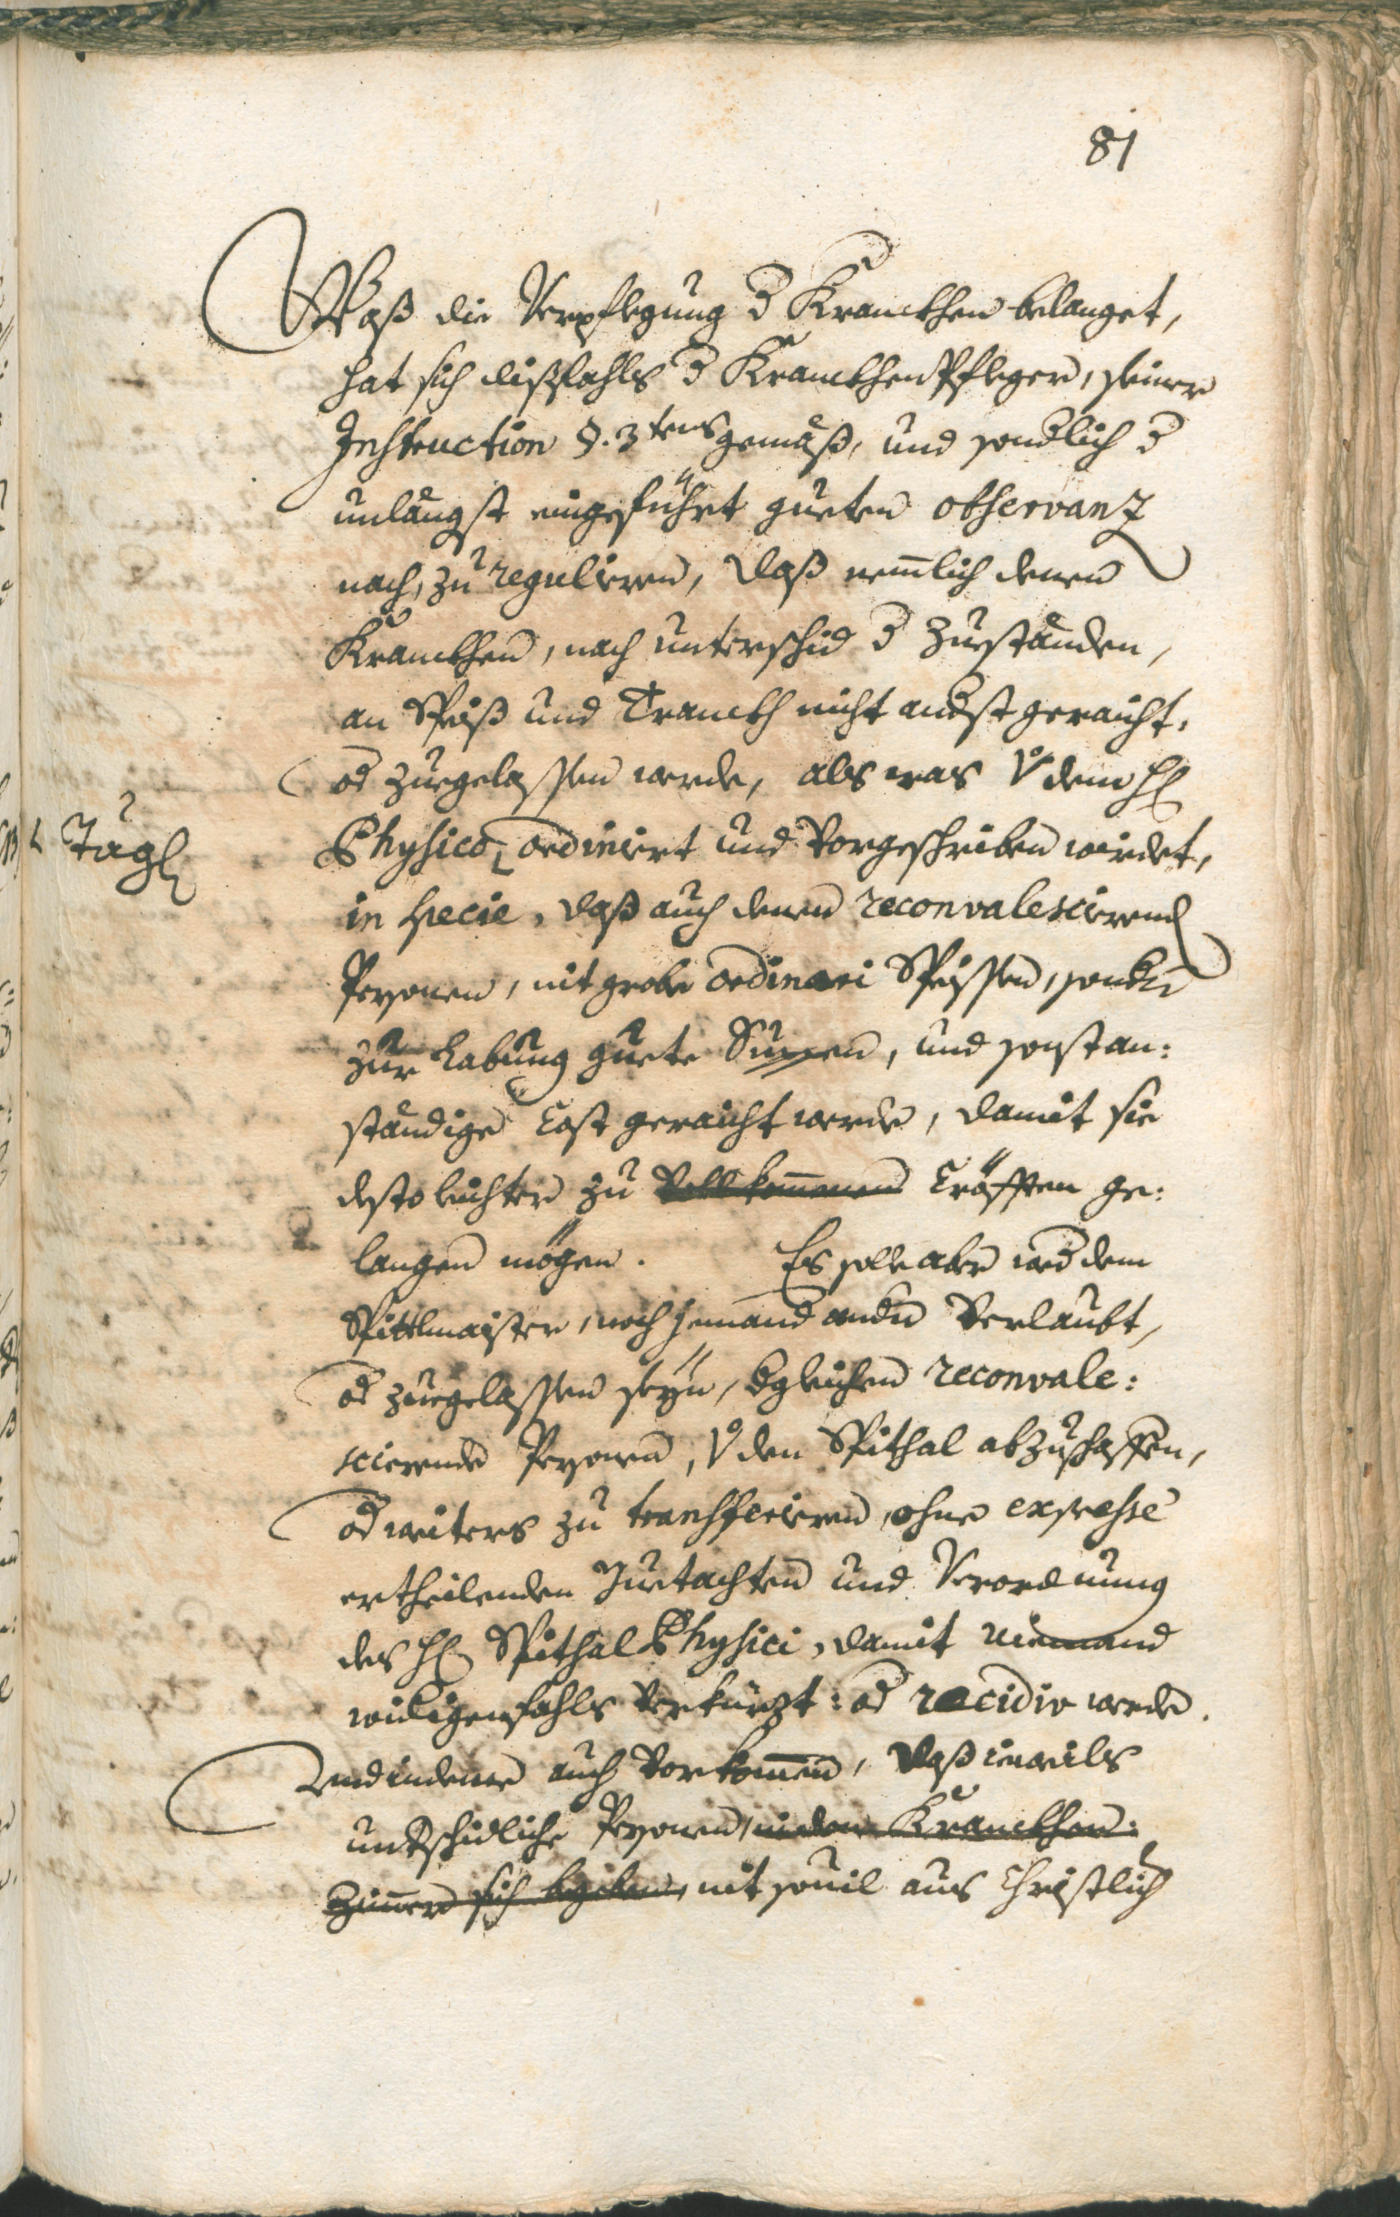 81
Waß die Verpflegung d Kranckhen belanget,
hat sich dißfahls d KranckhenPfleger, seiner
Instruction §. 3tens gemäß, und sondlich d
unlängst eingeführt gueten observanz
nach, zu regulieren, daß nemlich denen
Kranckhen, nach unterschid d Zueständen,
an Speiß und Tranckh nicht andst geraicht,
od zuegelassen werde, als was v dem H
Tägl
Physico ordiniert und vorgeschriben wirdet,
in specie, daß auch denen reconvalescierend
Persohnen, nit grobe ordinari Speissen, sondn
zur Labung guete Suppen, und sonst an:
ständige Cost geraicht werde, damit sie
desto leichter zu vollkommenen Cröfften ge:
langen mögen. Es solle aber wed dem
Spittlmaister, noch jemand andn verlaubt,
od zuegelassen seyn, dgleichen reconvale:
scierende Persohnen, v den Spithal abzuschaffen,
od weiters zu transferieren, ohne expresse
ertheilenden Guetachten und Verordnung
des H Spithal Physici, damit niemand
widrigenfahls verkürzt: od recidiv werde.
Und indeme auch vorkommen, daß jeweils
undschidliche Persohnen, in den Kranckhen:
Zimmern sich begeben, nit sovil aus Christlich